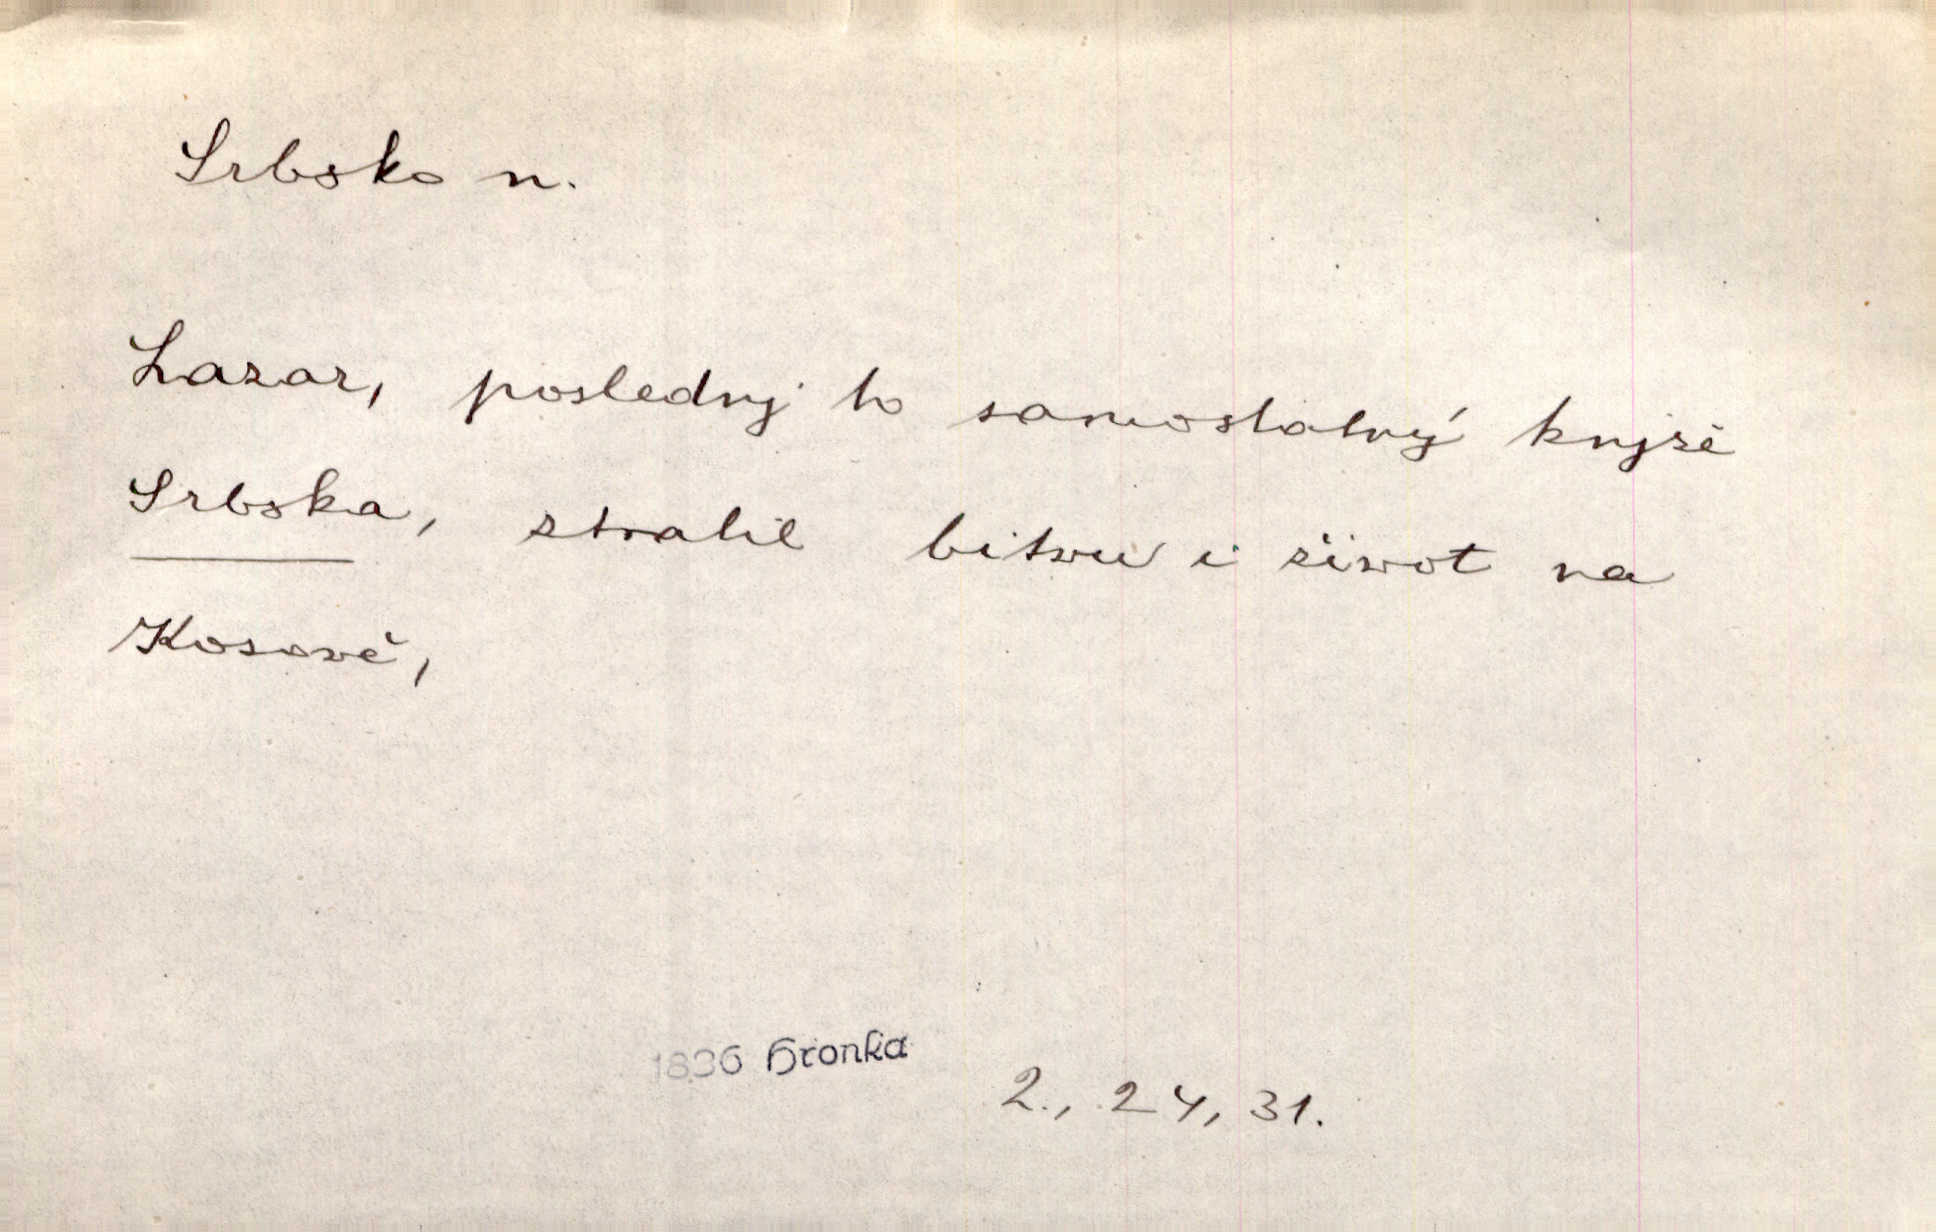 Srbsko n.
Lazar, poslednj to samostatný knjže
Srbska, ztratil bitwu i život na
Kosowě,
1836 Hronka
2., 24, 31.